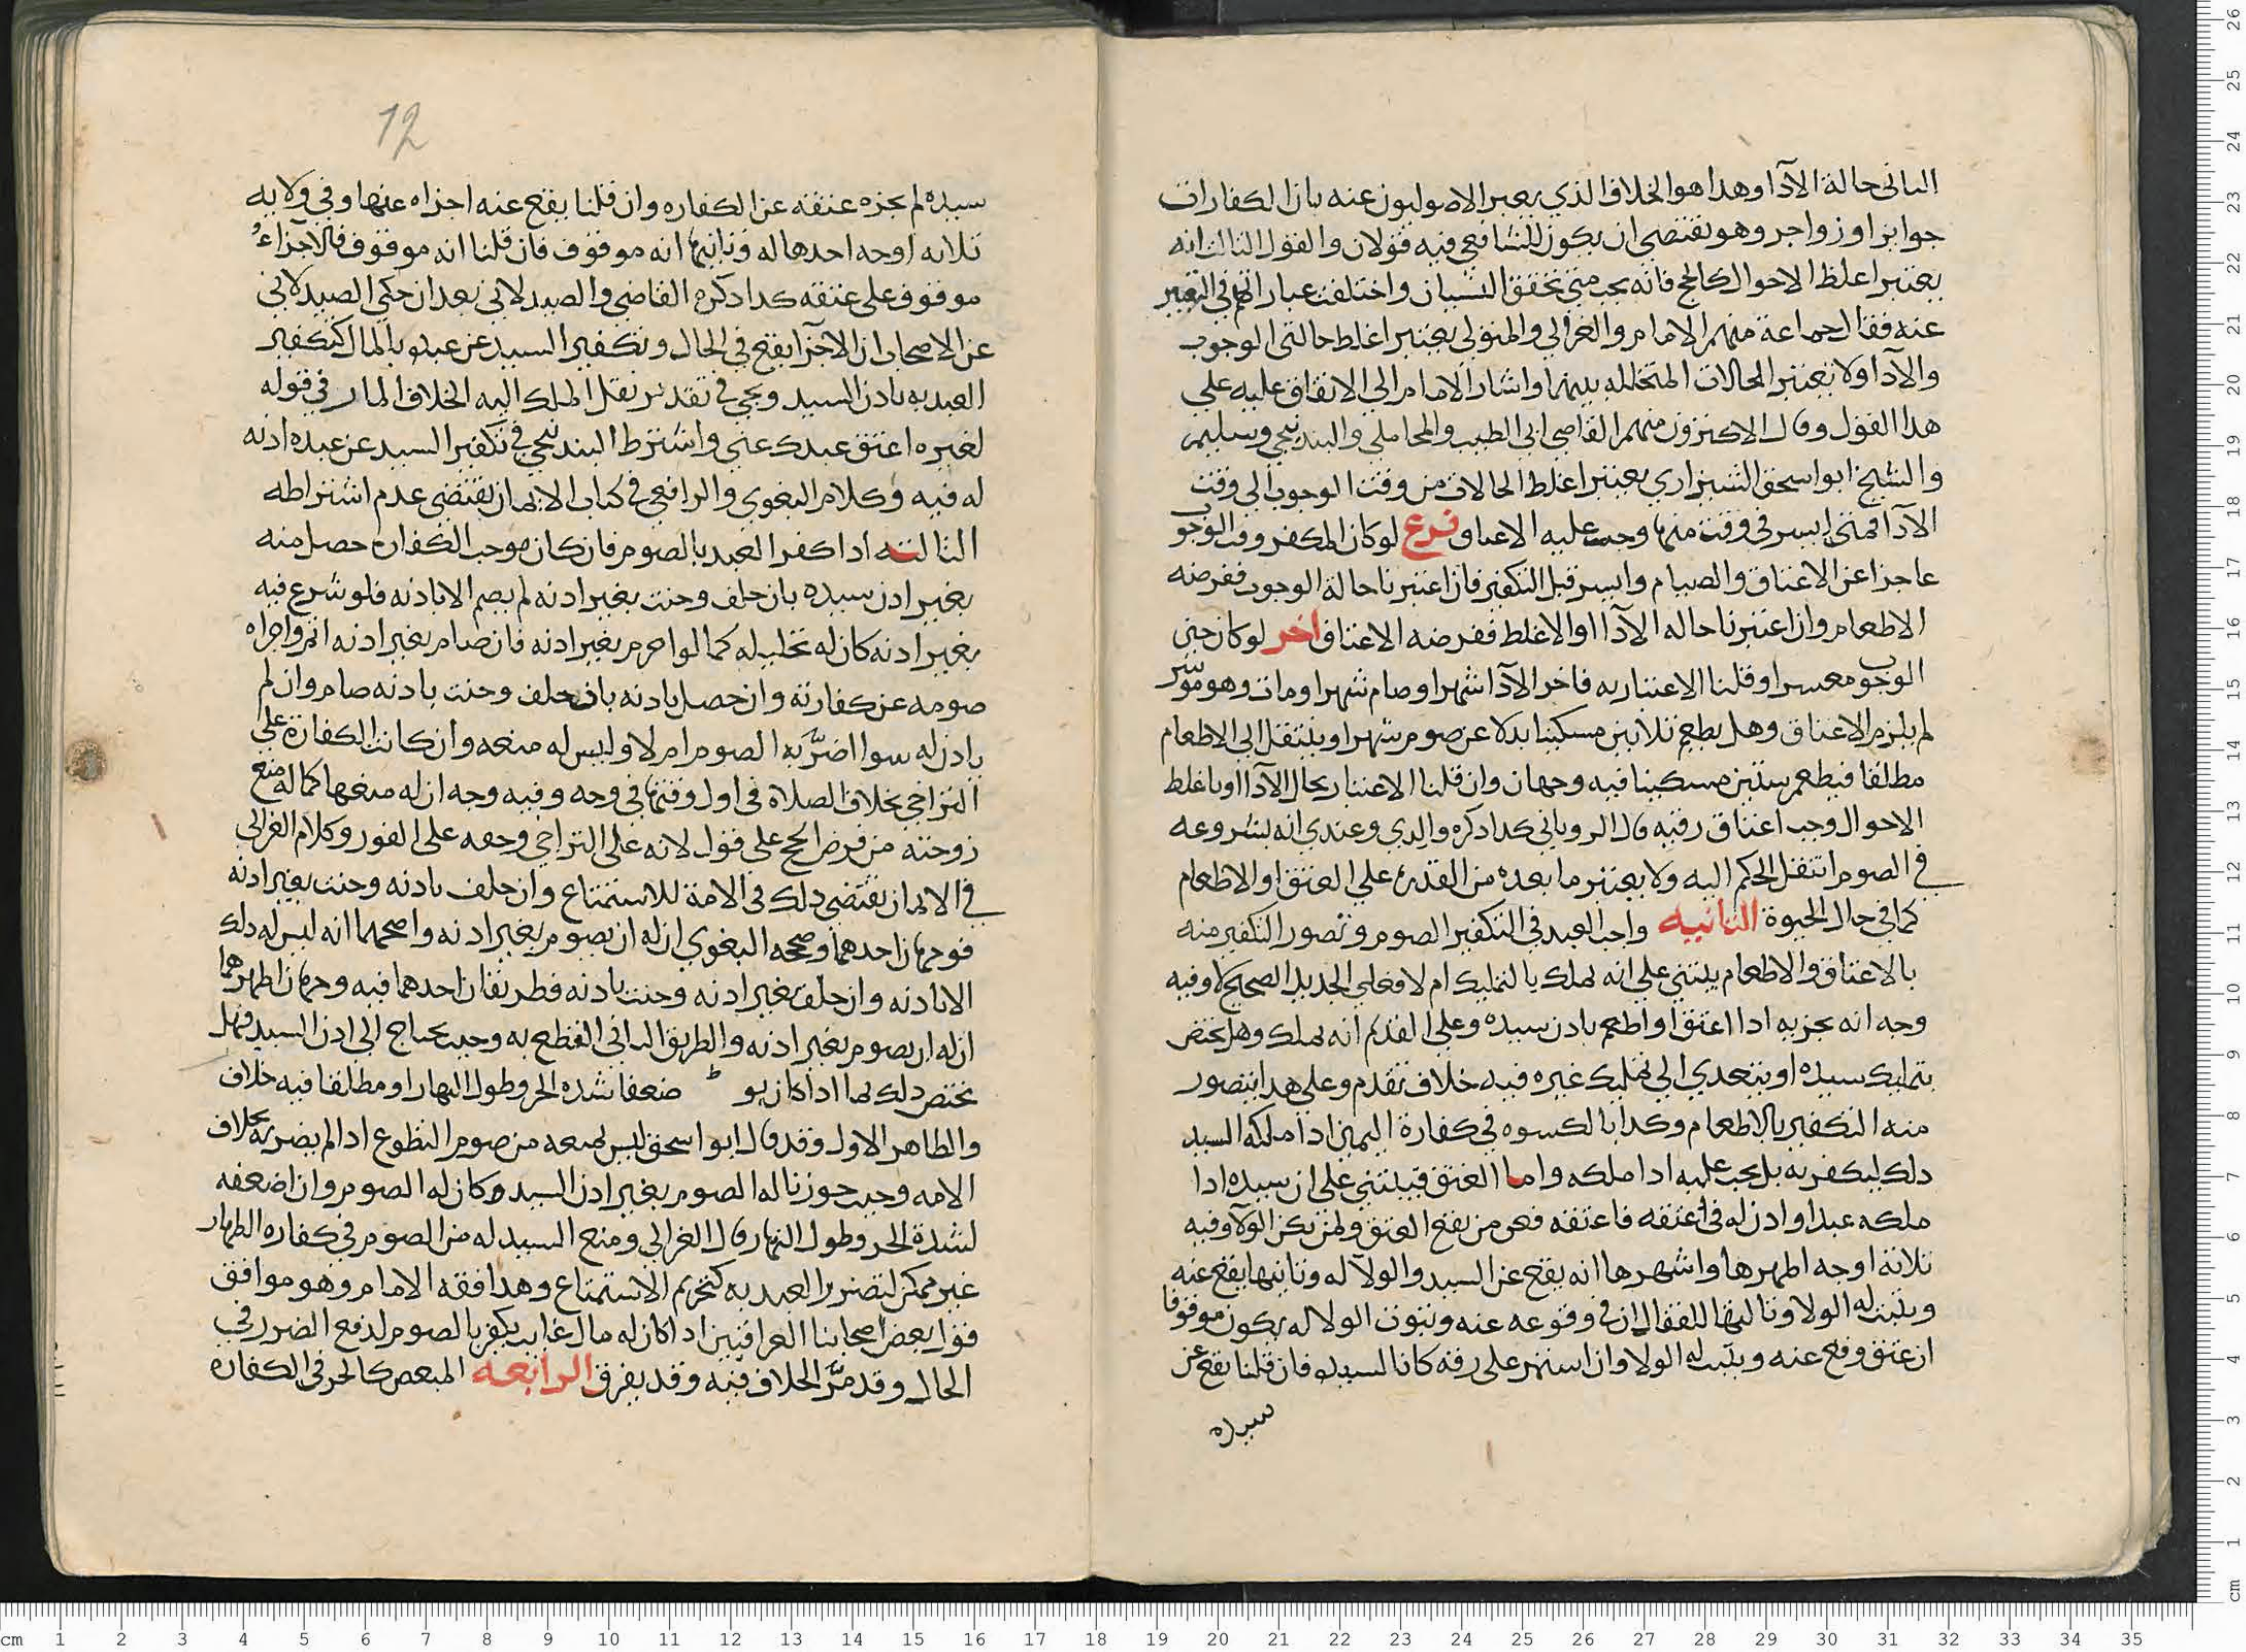 الثانى حالة الآدا وهذا هو الخلاف الذي يعبر الاصوليون عنه بان الكفارات
جوابر او زواجر وهو يقتضى ان يكون للشافعي فيه قولان والقول الثالث انه
يعتبر اغلظ الاحوال كالحج فانه يجب متى تحقق اليسار واختلفت عباراتهم في التعبير
عنه فقال جماعة منهم الامام والغزالي والمتولى يعتبر اغلظ حالتى الوجوب
والآدا ولا يعتبر الحالات المتخلله بينهما واشار الامام الى الاتفاق عليه على
هذا القول وقال الاكثرون منهم القاضى ابى الطيب والمحاملي والبندنيجي وسليم
والشيخ ابو اسحق الشيرازي يعتبر اغلظ الحالات من وقت الوجوب الى وقت
الآدا فمتى ايسر في وقت منها وجب عليه الاعتاق فرع لو كان المكفر وقت الوجوب
عاجزا عن الاعتاق والصيام وايسر قبل التكفير فان اعتبرنا حالة الوجوب ففرضه
الاطعام وان اعتبرنا حاله الآدا او الاغلظ ففرضه الاعتاق اخر لو كان حين
الوجوب معسرا وقلنا الاعتبار به فاخر الآدا شهرا وصام شهرا ومات وهو موسر
لم يلزم الاعتاق وهل يطعم ثلاثين مسكينا بدلا عن صوم شهر او ينتقل الى الاطعام
مطلقا فيطعم ستين مسكينا فيه وجهان وان قلنا الاعتبار بحال الآدا او باغلظ
الاحوال وجب اعتاق رقبه قال الروياني كذا ذكره والدي وعندي انه بشروعه
في الصوم انتقل الحكم اليه ولا يعتبر ما بعده من القدره على العتق او الاطعام
كما في حال الحيوة الثانيه واجب العبد في التكفير الصوم وتصور التكفير منه
بالاعتاق والاطعام يبتني على انه يملك بالتمليك ام لا فعلى الجديد الصحيح لا وفيه
وجه انه يجزيه اذا اعتق او اطعم باذن سيده وعلى القديم انه يملك وهل يختص
بتمليك سيده او يتعدي الى تمليك غيره فيه خلاف تقدم وعلى هذا يتصور
منه التكفير بالاطعام وكذا بالكسوه في كفارة اليمين اذا ملكه السيد
ذلك ليكفر به بل يجب عليه اذا ملكه واما العتق فيبتني على ان سيده اذا
ملكه عبدا واذن له فى عتقه فاعتقه فعن من يقع العتق ولمن يكن الولا وفيه
ثلاثة اوجه اظهرها واشهرها انه يقع عن السيد والولآ له وثانيها يقع عنه
ويثبت له الولا وثالثها للقفال ان في وقوعه عنه وثبوت الولا له يكون موقوفا
ان عتق وقع عنه ويثبت له الولا وان استمر على رقه كانا لسيده فان قلنا يقع عن
سيده
12
سيده لم يجزه عتقه عن الكفاره وان قلنا يقع عنه اجزاه عنها وفي ولايه
ثلاثه اوجه احدها له وثانيها انه موقوف فان قلنا انه موقوف فالاجزاء
موقوف على عتقه كذا ذكره القاضى والصيدلانى بعد ان حكي الصيدلانى
عن الاصحاب ان الاجزا يقع في الحال وتكفير السيد عن عبده بالمال كتكفير
العبد به باذن السيد ويجي في تقدير نقل الملك اليه الخلاف المار في قوله
لغيره اعتق عبدك عني واشترط البندنيجي في تكفير السيد عن عبده اذنه
له فيه وكلام البغوي والرافعي في كتاب الايمان يقتضى عدم اشتراطه
الثالثه اذا كفر العبد بالصوم فان كان موجب الكفاره حصل منه
بغير اذن سيده بان حلف وحنث بغير اذنه لم يصم الا باذنه فلو شرع فيه
بغير اذنه كان له تحليله كما لو احرم بغير اذنه فان صام بغير اذنه اثم واجزاه
صومه عن كفارته وان حصل باذنه بان حلف وحنث باذنه صام وان لم
ياذن له سوا اضرّ به الصوم ام لا وليس له منعه وان كانت الكفارة على
التراخي بخلاف الصلاة فى اول وقتها في وجه وفيه وجه ان له منعها كما له منع
زوجته من فرض الحج على قول لانه على التراخي وحقه على الفور وكلام الغزالي
في الايمان يقتضى ذلك فى الامة للاستمتاع وان حلف باذنه وحنث بغير اذنه
فوجهان احدهما وصححه البغوي ان له ان يصوم بغير اذنه واصحهما انه ليس له ذلك
الا باذنه وان حلف بغير اذنه وحنث باذنه فطريقان احدهما فيه وجهان اظهرهما
ان له ان يصوم بغير اذنه والطريق الثانى القطع به وحيث يحتاج الى اذن السيد فهل
يختص ذلك بما اذا كان يو ضعفا لشدة الحر وطول النهار او مطلقا فيه خلاف
والظاهر الاول وقد قال ابو اسحق ليس له منعه من صوم التطوع اذا لم يضر به بخلاف
الامه وحيث جوزنا له الصوم بغير اذن السيد وكان له الصوم وان اضعفه
لشدة الحر وطول النهار قال الغزالي ومنع السيد له من الصوم في كفاره الظهار
غير ممكن لتضرير العبد به كتحريم الاستمتاع وهذا فقه الامام وهو موافق
قول بعض اصحابنا العراقيين اذا كان له مال غايب يكفر بالصوم لدفع الضرر في
الحال وقد مرّ الخلاف فيه وقد يفرق الرابعه المبعض كالحر فى الكفاره